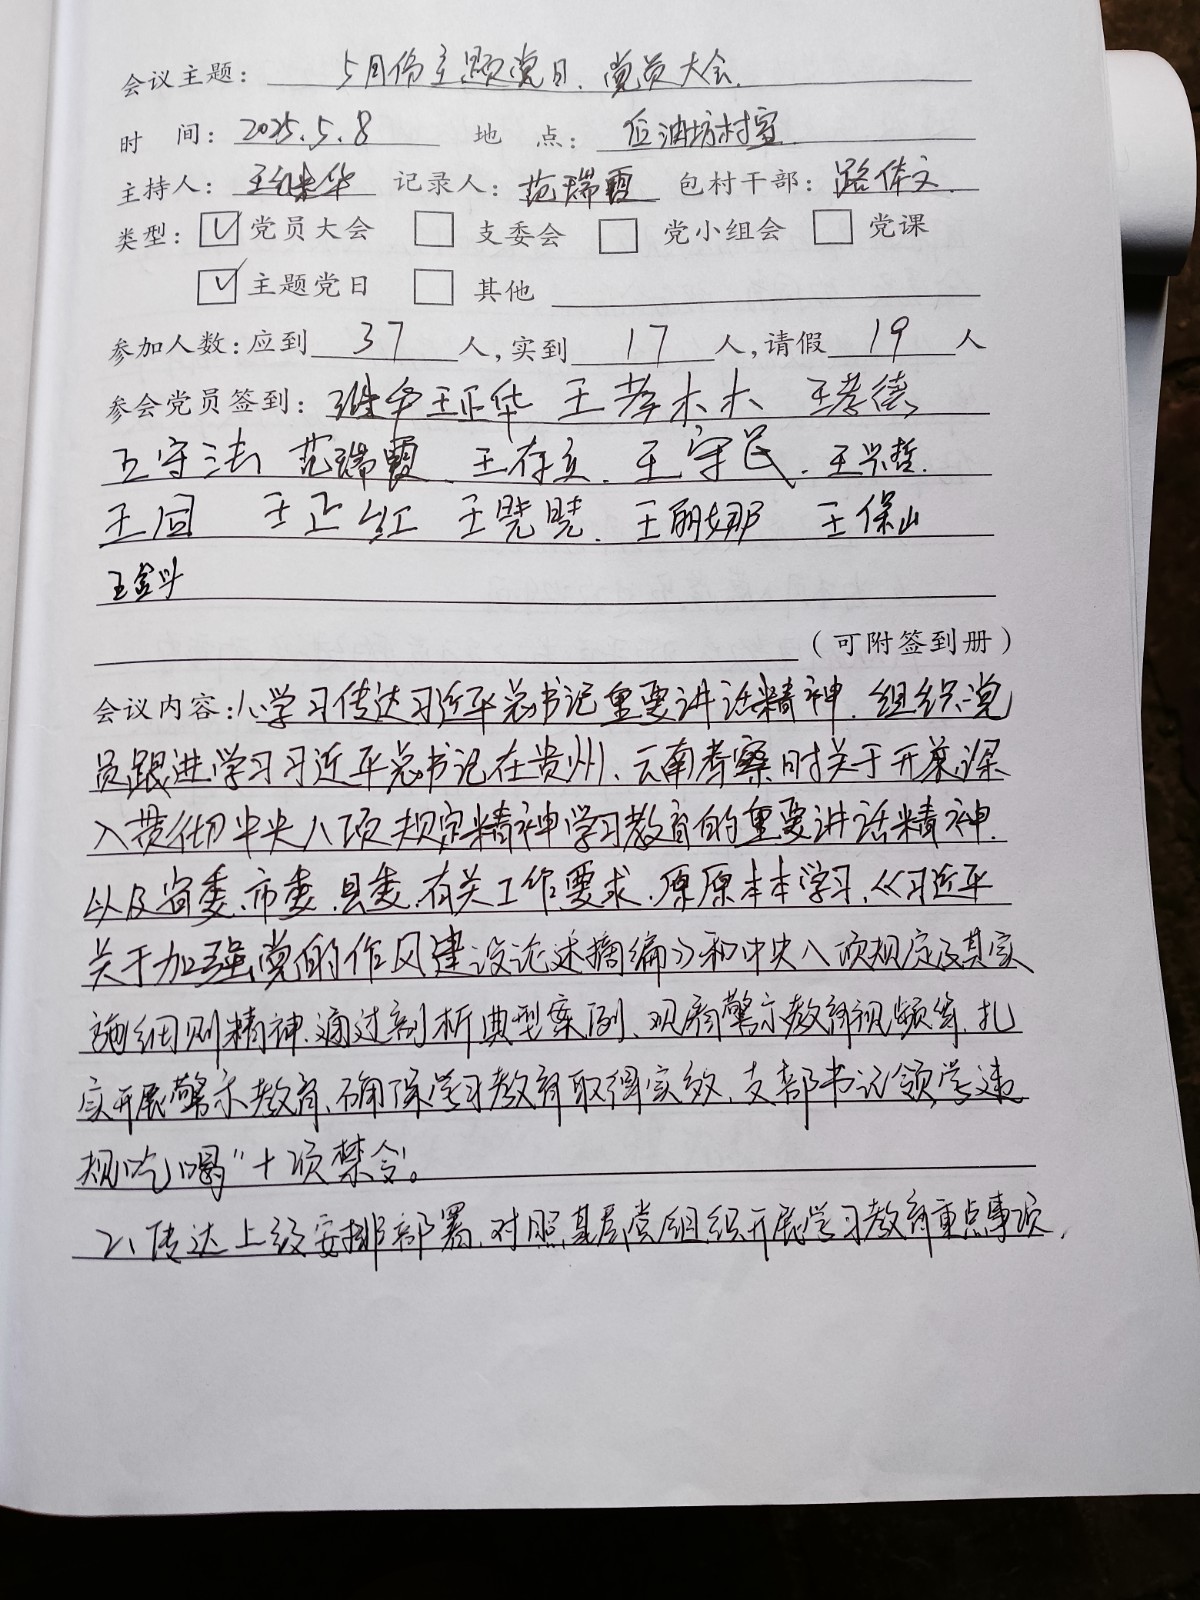 会议主题: 5月份主题党日、党员大会.
时 间: 2025.5.8 地 点: 位油坊村室
主持人: 王继华 记录人: 范瑞霞 包村干部: 路体文
类型: ☑ 党员大会 □ 支委会 □ 党小组会 □ 党课
☑ 主题党日 □ 其他
参加人数: 应到 37 人, 实到 17 人, 请假 19 人
参会党员签到: 王正华 王孝木 王孝德
王守法 范瑞霞、王存立、王守民、王兴哲.
王固 王正红 王晓晓、王丽娜 王保山
王金丹
(可附签到册)
会议内容: 1、学习传达习近平总书记重要讲话精神、组织党
员跟进学习习近平总书记在贵州、云南考察时关于开展深
入贯彻中央八项规定精神学习教育的重要讲话精神.
以及省委、市委、县委、有关工作要求、原原本本学习、《习近平
关于加强党的作风建设论述摘编》和中央八项规定及其实
施细则精神、通过剖析典型案例、观看警示教育视频等、扎
实开展警示教育、确保学习教育取得实效、支部书记领学违
规"吃喝"十项禁令。
2、传达上级安排部署、对照基层党组织开展学习教育重点事项,